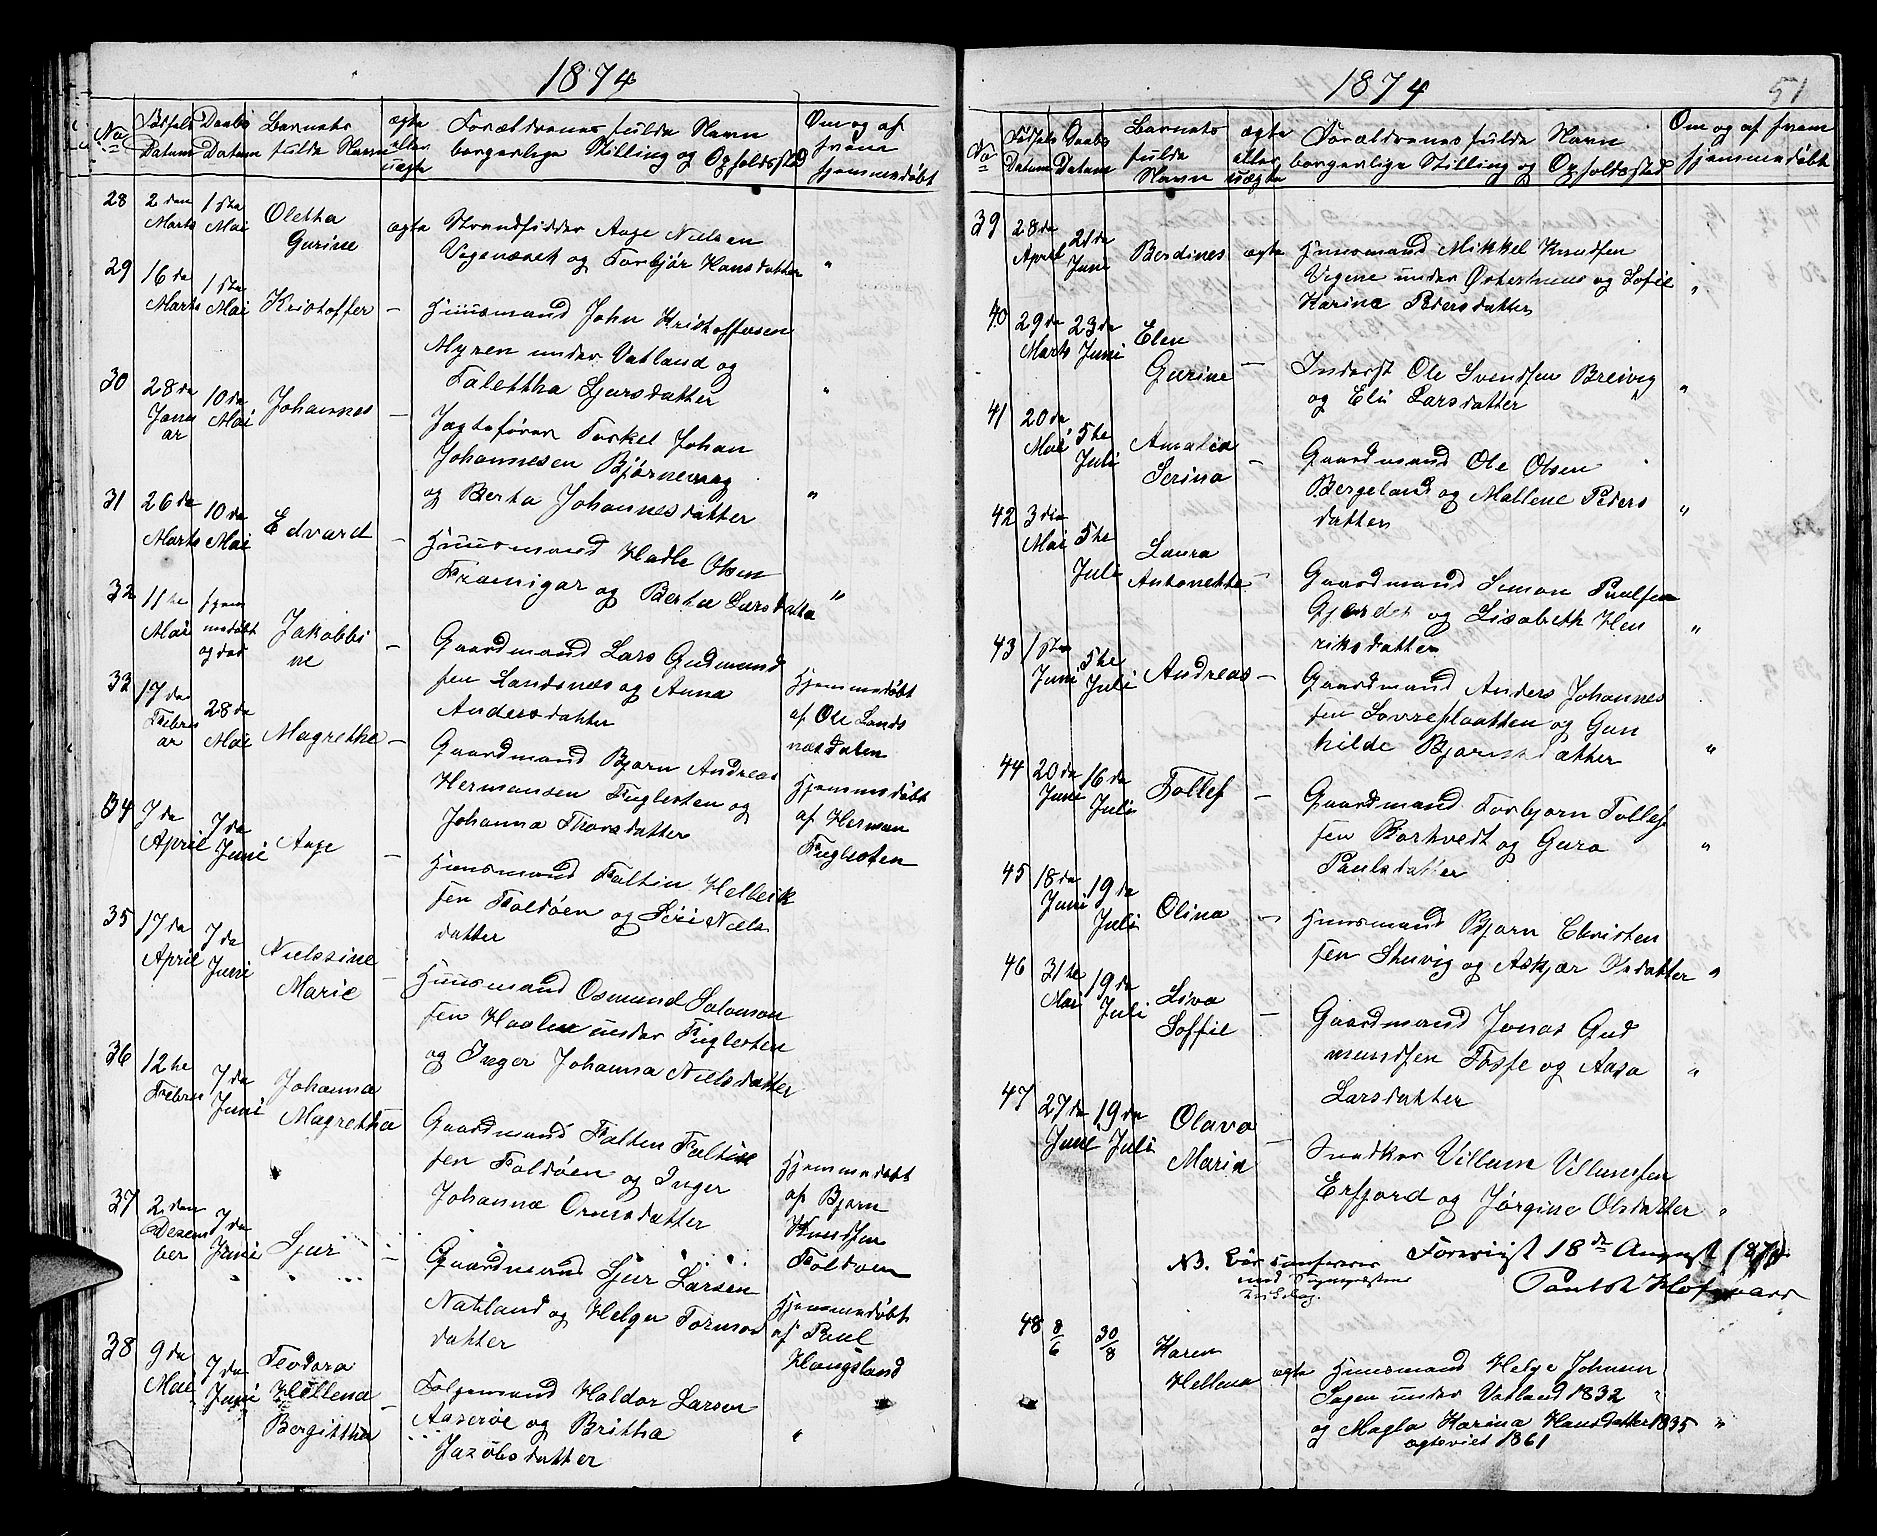 1874
No
Fødsels Datum
Daabs Datum
Barnets fulde Navn
ægte eller uægte
Forældrenes fulde Navn
borgerlige Stilling og Opholdssted
Om og af hvem hjemmedøbt
28 2den Marts 1ste Mai Oletha Gurine ægte Strandsidder Aage Nielsen
Vegenæset og Torbjør Hansdatter "
29 16de Marts 1ste Mai Kristoffer — Huusmand John Kristoffersen
Myren under Vatland og
Talettha Sjursdatter "
30 28de Januar 10de Mai Johannes — Jagtefører Torkel Johan
Johannesen Bjørnevaag
og Berta Johannesdatter "
31 26de Marts 10de Mai Edvard — Huusmand Hadle Olsen
og Berta Larsdatter "
32 11te Mai hjemmedøbt og død Jakobbine — Gaardmand Lars Gudmundsen
Landsnes og Anna
Andersdatter
Hjemmedøbt af Ole Landsnes
33 17de Februar 28de Mai Magrethe — Gaardmand Bjørn Andreas
Hermansen Fuglesten og
Johanna Thorsdatter
Hjemmedøbt af Herman Fuglesten
34 7de April 7de Juni Aage — Huusmand Faltin Helverksen
Foldøen og Siri Nielsdatter
35 17de April 7de Juni Nielssine Marie — Huusmand Osmund Salomonsen
Haalen under Fuglesten
og Inger Johanna Nielsdatter
36 12te Februar 7de Juni Johanna Magretha Gaardmand Falten Faltinsen
Foldøen og Inger
Johanna Ormsdatter
Hjemmedøbt af Bjørn Knudsen Foldøen
37 2den Desember 7de Juni Sjur — Gaardmand Sjur Larsen
Natland og Helga Tormodsdatter
Hjemmedøbt af Paul Haugsland
38 9de Mai 7de Juni Teodora Hellena Bergittha — Folgemand Haldor Larsen
Aaserøe og Britha
Jacobsdatter "
1874
51
No
Fødsels Datum
Daabs Datum
Barnets fulde Navn
ægte eller uægte
Forældrenes fulde Navn
borgerlige Stilling og Opholdssted
Om og af hvem
hjemmedøbt
39 28de April 21de Juni Berdines ægte Huusmand Mikkel Knudsen
Vegene under Østerhus og Sofie
Karina Pedersdatter "
40 29de Marts 23de Juni Elen Gurine — Inderst Ole Svendsen Breivig
og Eli Larsdatter "
41 20de Mai 5te Juli Amalia Serina — Gaardmand Ole Olsen
Bergeland og Mallene Pedersdatter "
42 3die Mai 5te Juli Laura Antonette — Gaardmand Simon Paulsen
Gjerdet og Lisabeth Henriksdatter "
43 1ste Juni 5te Juli Andreas — Gaardmand Anders Johannessen
Lovresflaatten og Gunhilde
Bjørnsdatter "
44 20de Juni 16de Juli Tollef — Gaardmand Torbjørn Tollefsen
Barkvedt og Guro
Paulsdatter "
45 18de Juni 19de Juli Olina — Huusmand Bjørn Christensen
og Askjær Olsdatter "
46 31te Mai 19de Juli Liva Soffie — Gaardmand Jonas Gudmundsen
Tosse og Aasa
Larsdatter "
47 27de Juni 19de Juli Olava Maria — Snedker Villum Villumsen
Erfjord og Jørgine Olsdatter "
Foreviist 18de August 1874.
NB. Bør conferres
med
48 8/6 30/8 Karen Hellena ægte Huusmand Helge Johnsen
Sagen under Vatland 1832
og Magla Karina Hansdatter 1835 "
ægteviet 1861